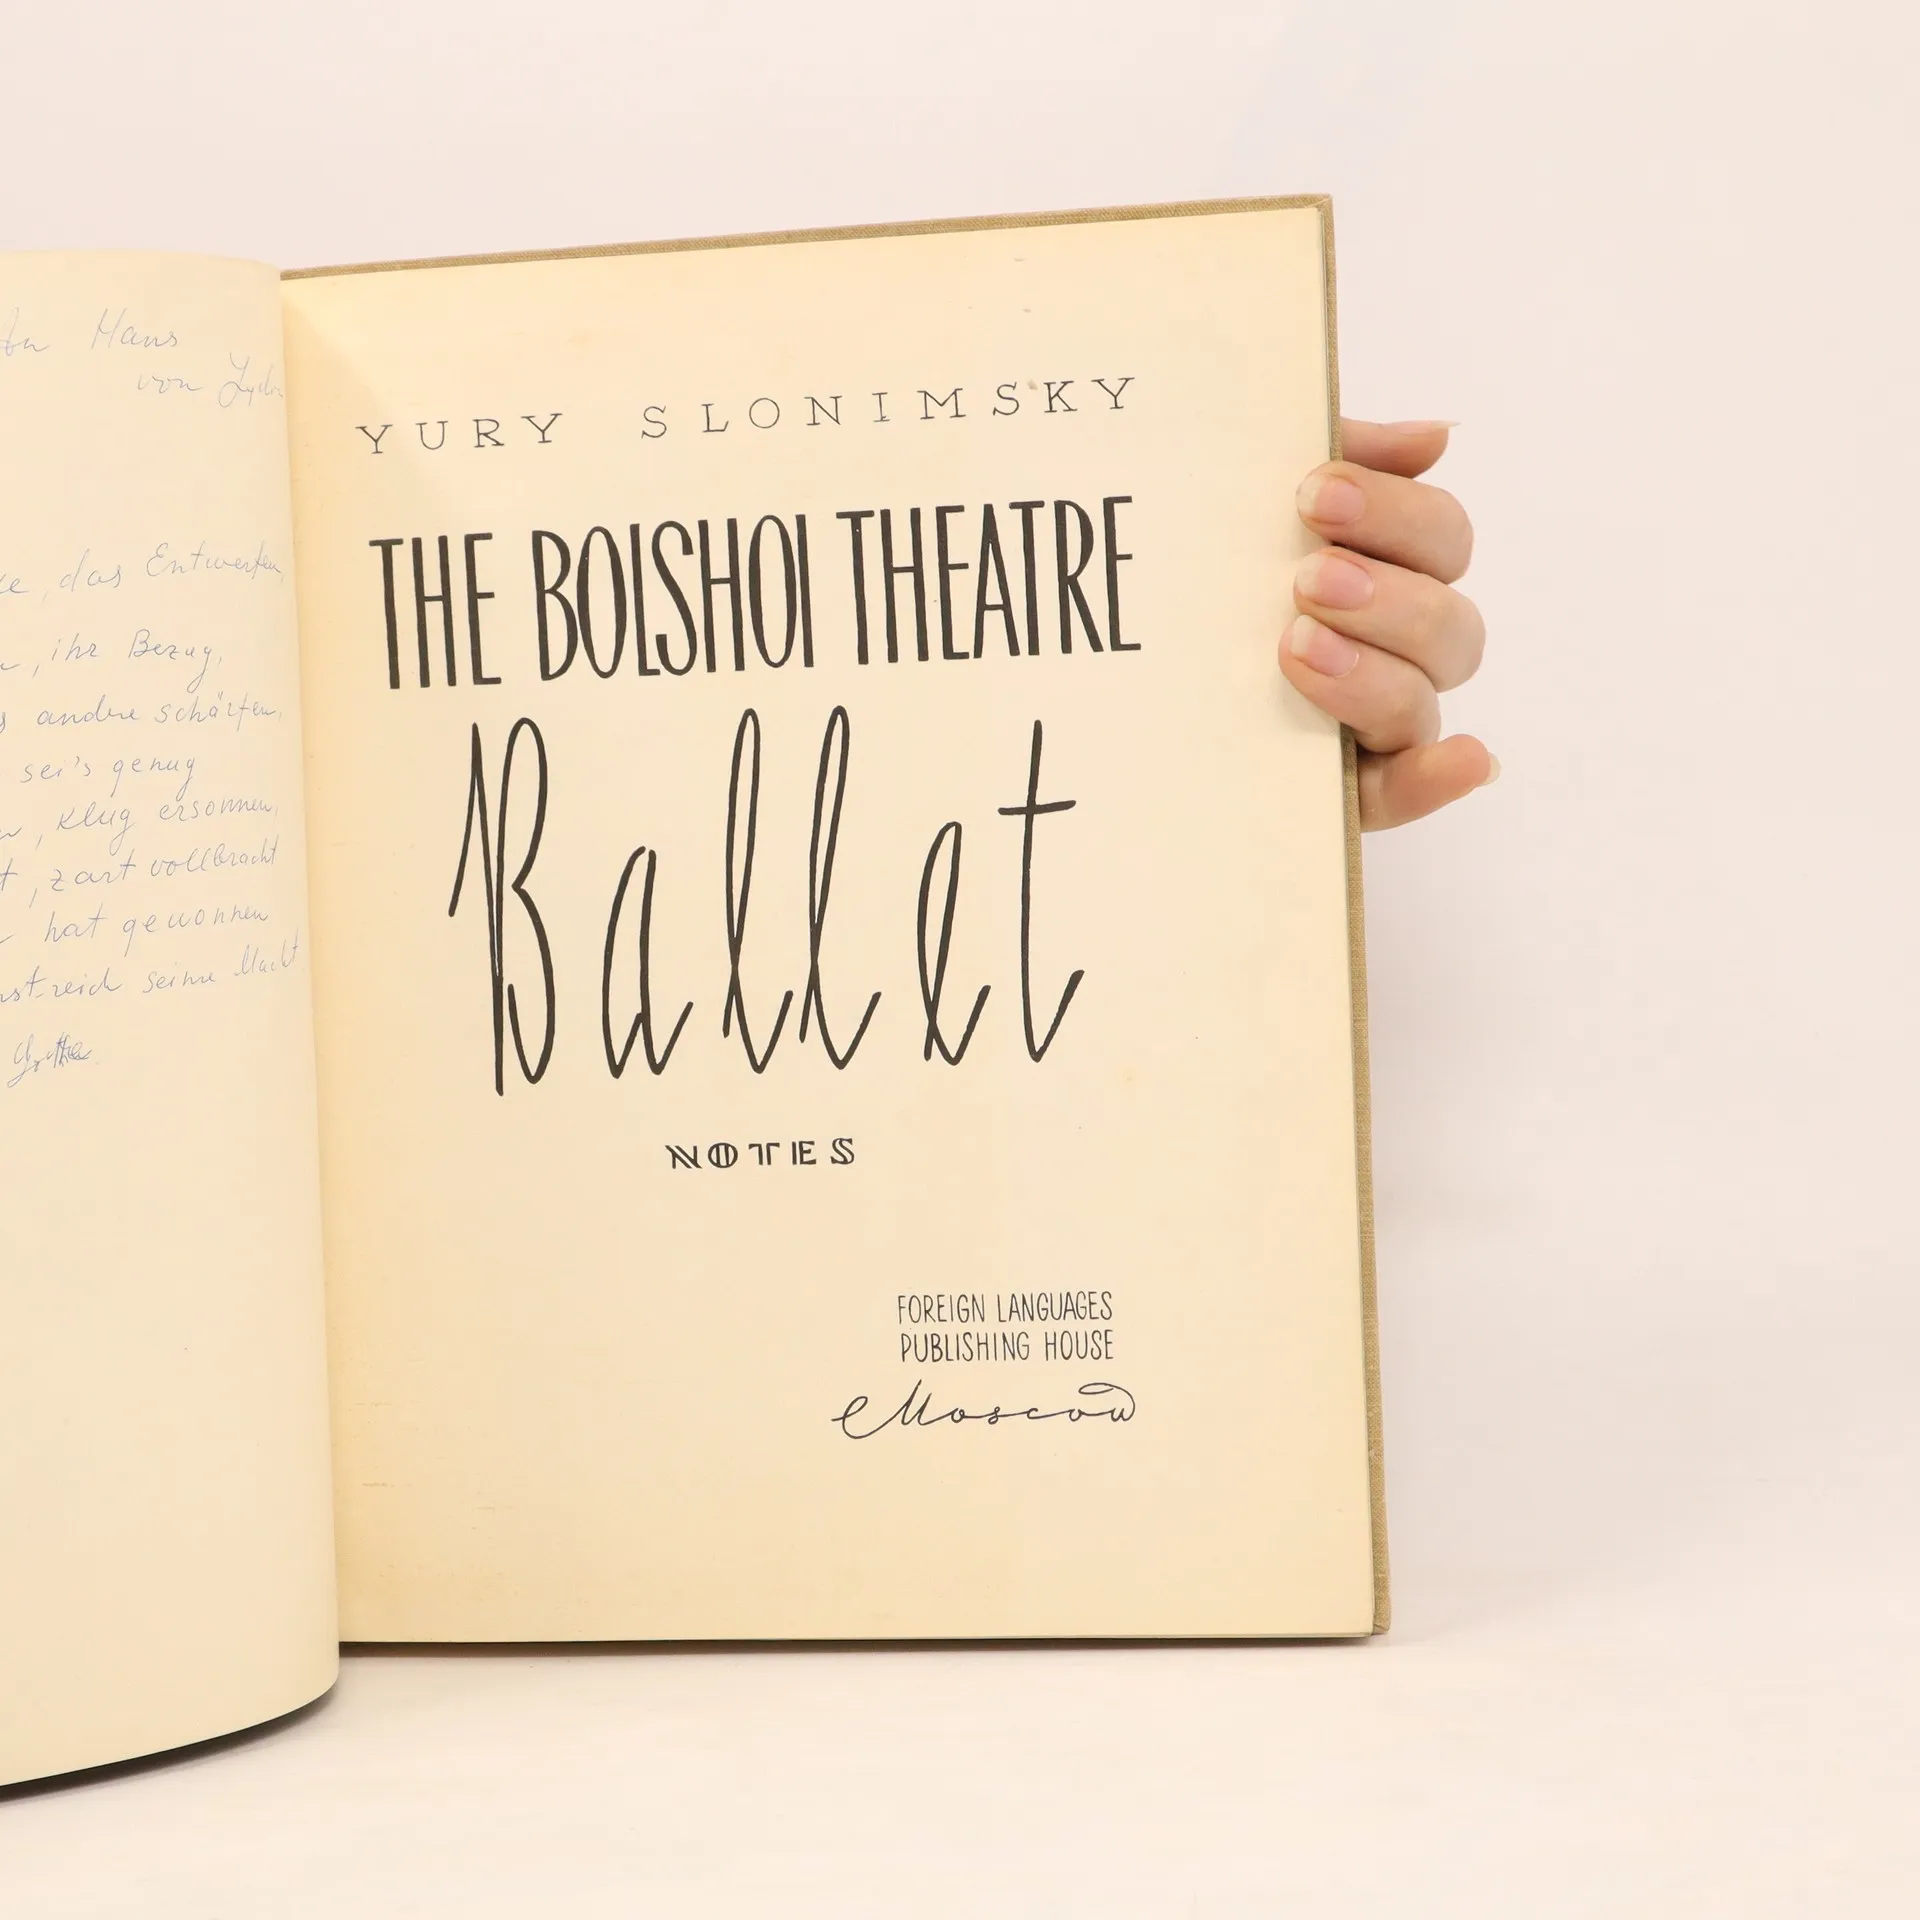 Hans
von
das Entwerfen,
, ihr Bezug,
andre schärfen,
sei's genug
, klug ersonnen,
, zart vollbracht
hat gewonnen
reich seine Macht.
Goethe
YURY SLONIMSKY
THE BOLSHOI THEATRE
Ballet
NOTES
FOREIGN LANGUAGES
PUBLISHING HOUSE
Moscow